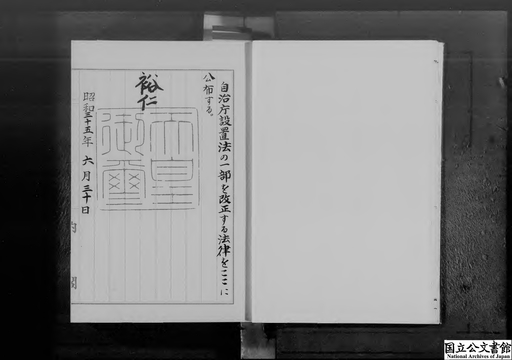 自治庁設置法の一部を改正する法律をここに
公布する。
裕仁
天皇
御璽
昭和三十五年六月三十日
内閣
国立公文書館
National Archives of Japan